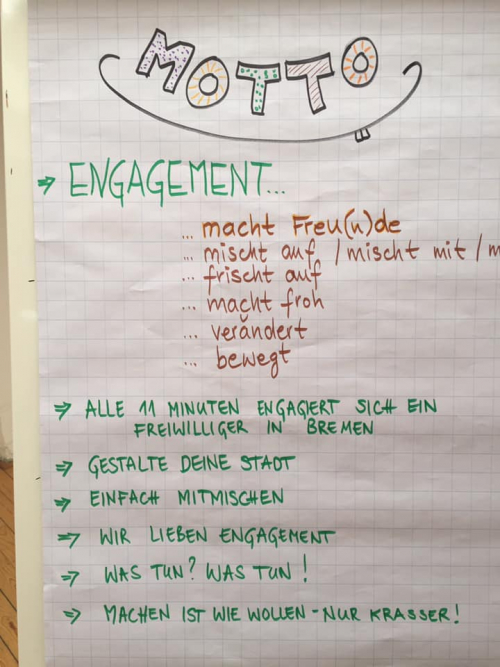 MOTTO
⇒ ENGAGEMENT...
... macht Freu(n)de
... mischt auf / mischt mit / m
... frischt auf
... macht froh
... verändert
... bewegt
⇒ ALLE 11 MINUTEN ENGAGIERT SICH EIN
FREIWILLIGER IN BREMEN
⇒ GESTALTE DEINE STADT
⇒ EINFACH MITMISCHEN
⇒ WIR LIEBEN ENGAGEMENT
⇒ WAS TUN? WAS TUN!
⇒ MACHEN IST WIE WOLLEN - NUR KRASSER!